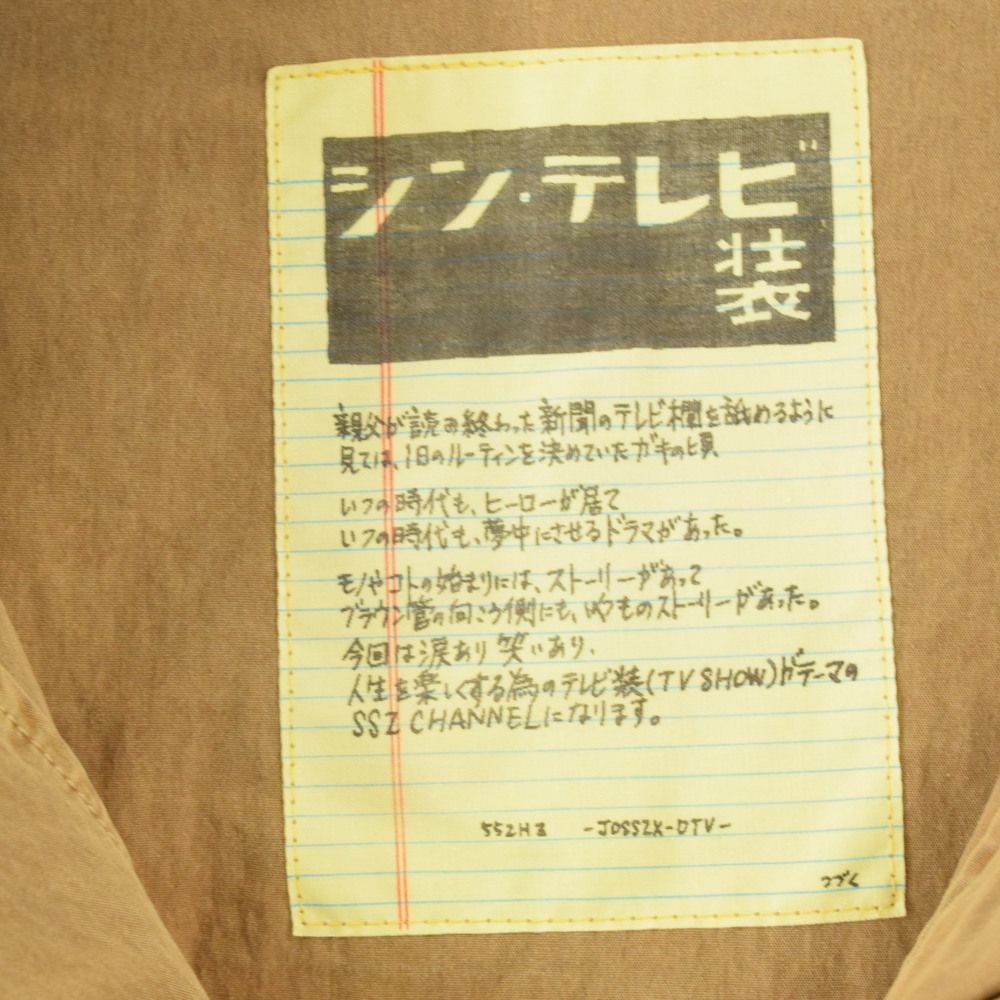 シン・テレビ
装
親父が読み終わった新聞のテレビ欄を舐めるように
見ては、1日のルーティンを決めていたガキの頃
いつの時代も、ヒーローが居て
いつの時代も、夢中にさせるドラマがあった。
モノやコトの始まりには、ストーリーがあって
ブラウン管の向こう側にも、いつものストーリーがあった。
今回は涙あり笑いあり、
人生を楽しくする為のテレビ装(TV SHOW)がテーマの
SSZ CHANNELになります。
552HZ -JOSSZX-DTV-
つづく